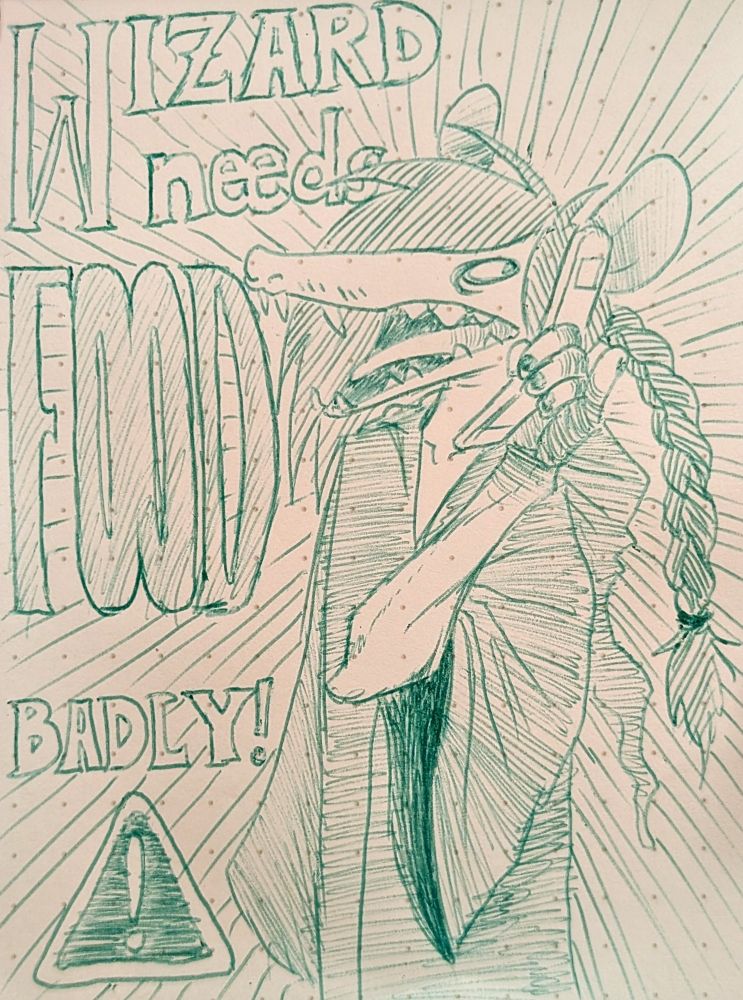 WIZARD
needs
FOOD
BADLY!
!